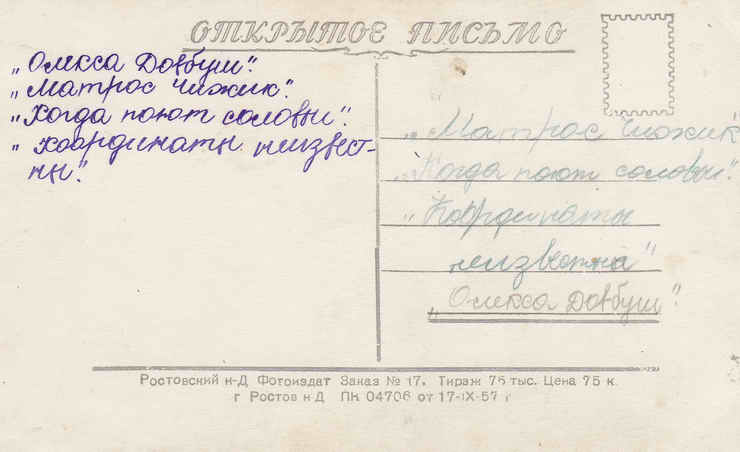 ОТКРЫТОЕ ПИСЬМО
„Олекса Довбуш".
„Матрос Чижик".
„Когда поют соловьи".
„Координаты неизвест-
ны".
„Матрос Чижик
„Когда поют соловьи".
„Координаты
неизвестна"
„Олекса Довбуш".
Ростовский н-Д Фотоиздат Заказ № 17. Тираж 75 тыс. Цена 75 к.
г Ростов н Д ПК 04706 от 17-IX-57 г